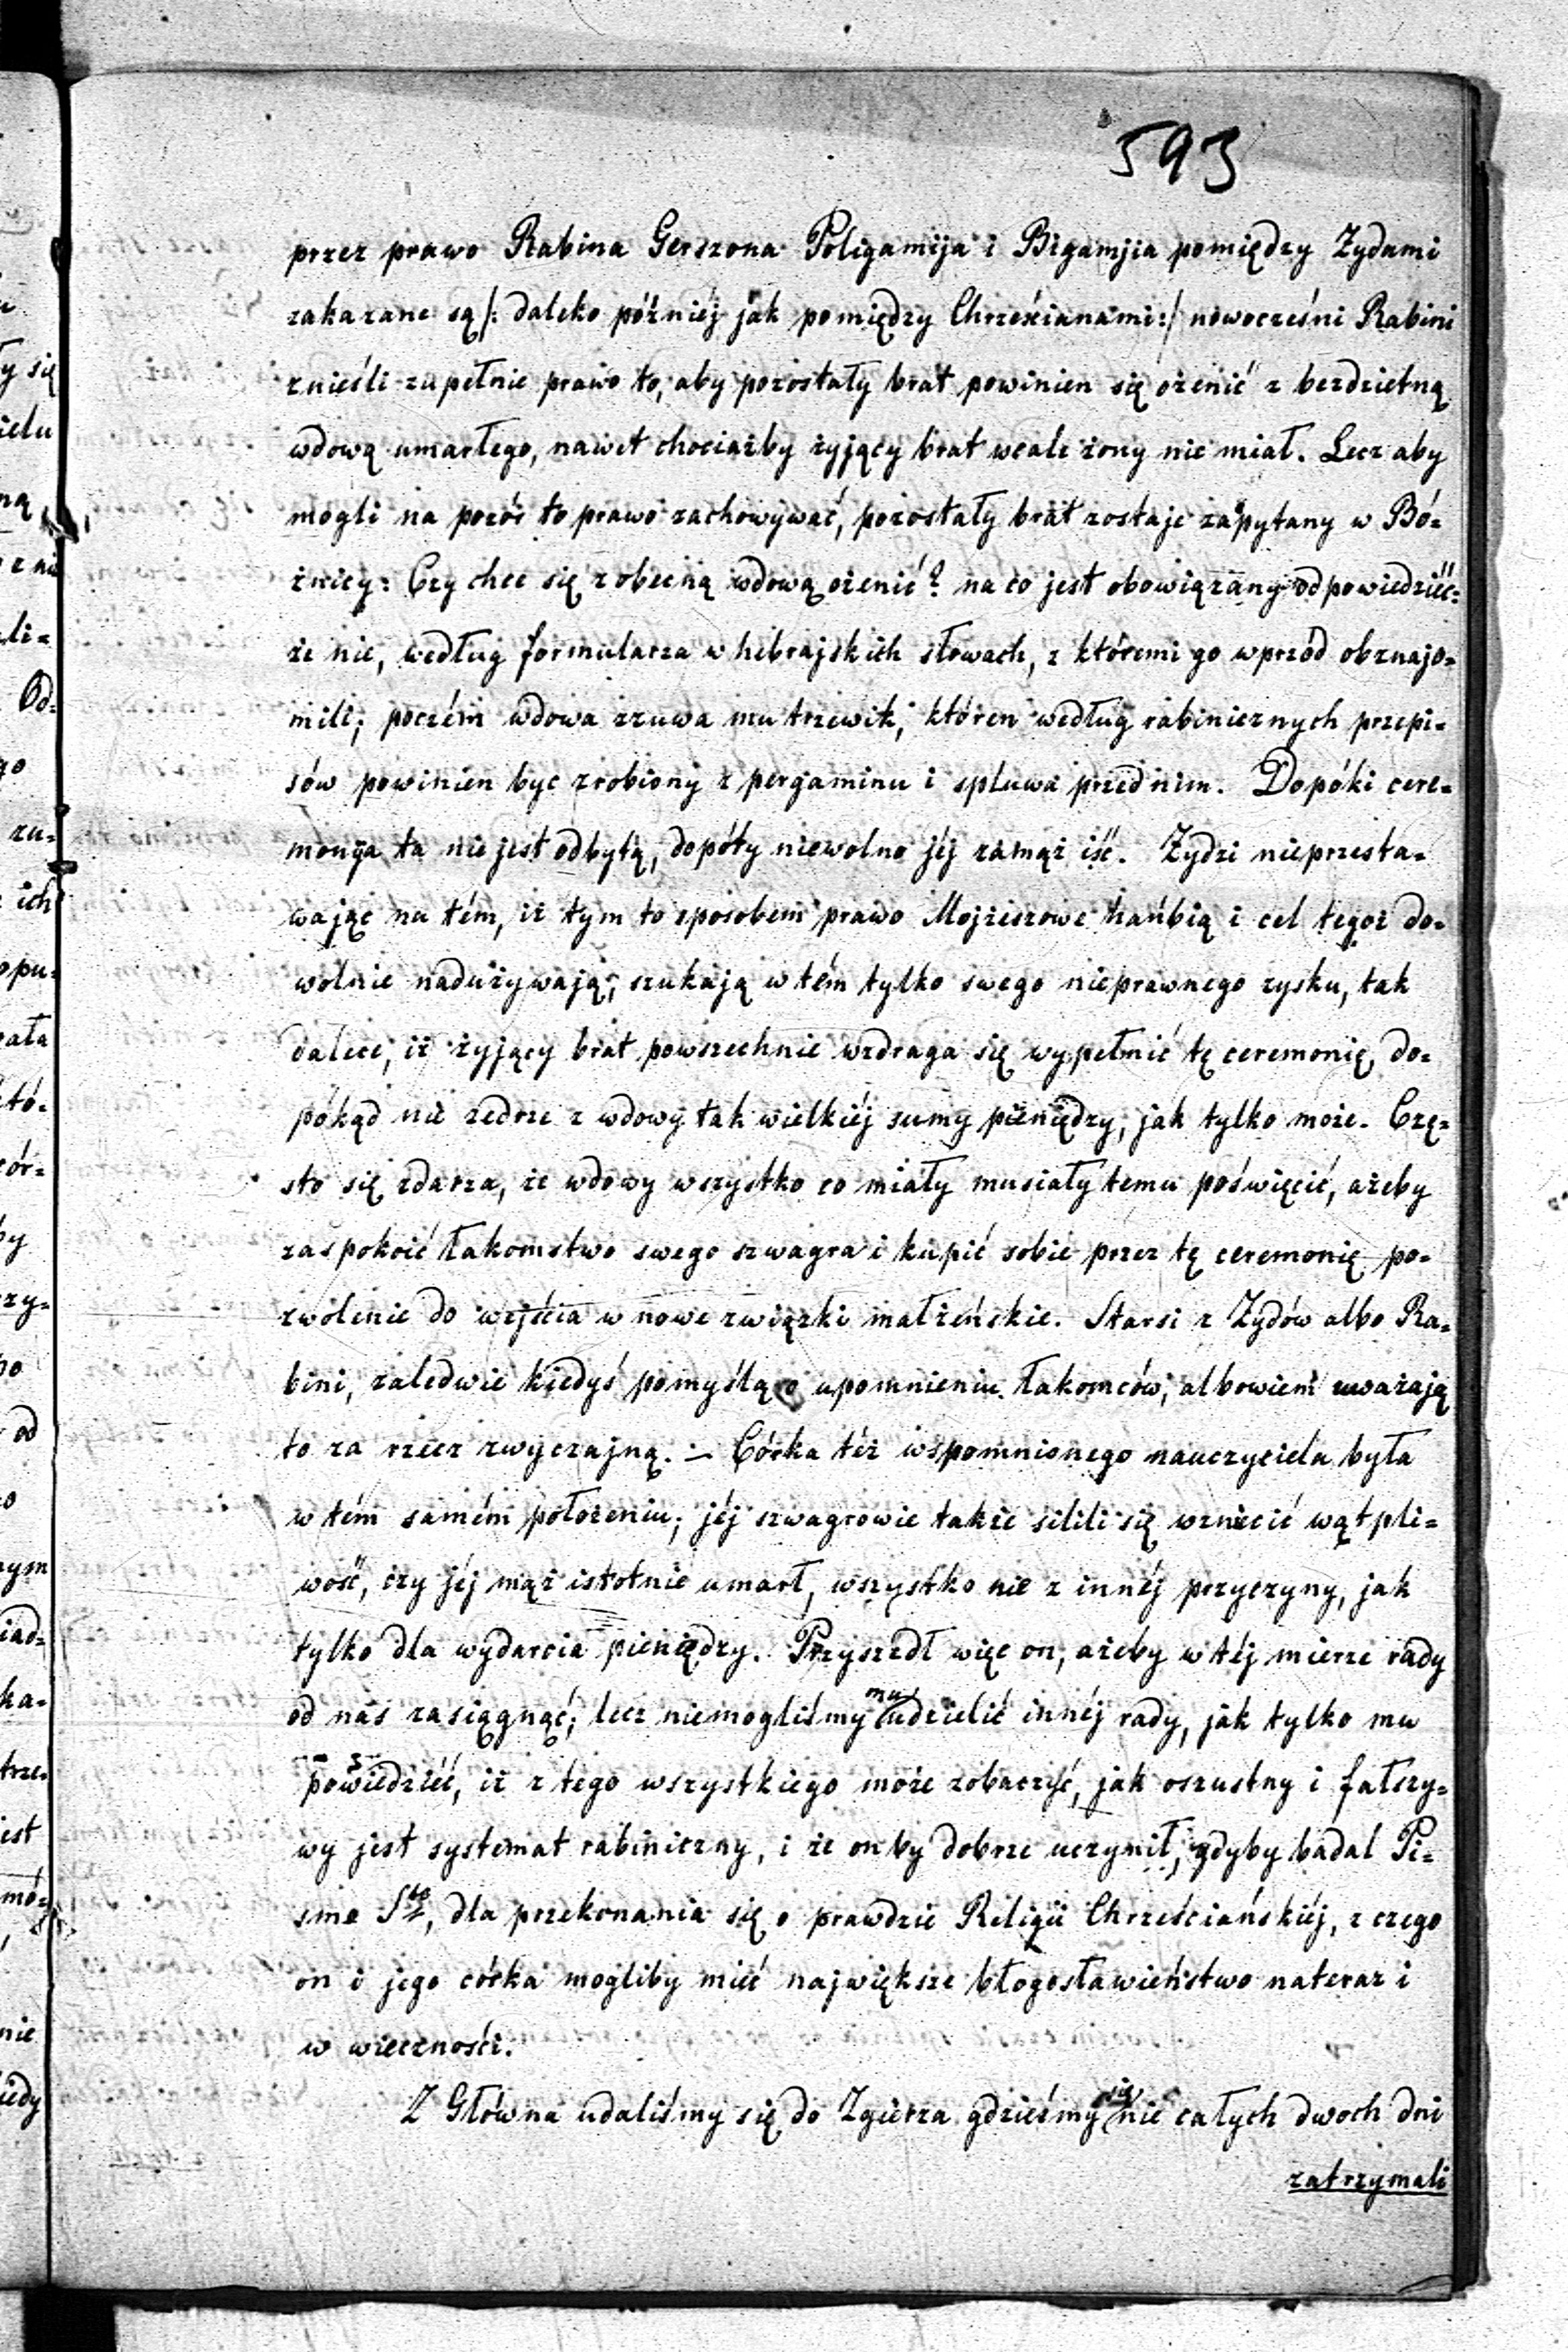 593
przez prawo Rabina Gerszona Poligamija i Bigamjia pomiędzy Zydami
zakazane są /: daleko później jak pomiędzy Chrześcianami :/ nowocześni Rabini
znieśli zupełnie prawo to, aby pozostały brat powinien się ożenić z bezdzietną
wdową umarłego, nawet chociażby żyjący brat wcale żony nie miał. Lecz aby
mogli na pozór to prawo zachowywać, pozostały brat zostaje zapytany w Bó=
żnicy: Czy chce się z obecną wdową ożenić? na co jest obowiązany odpowiedzieć:
że nie, według formularza w hebrajskich słowach, z któremi go wprzód obznajo=
mili; poczém wdowa zzuwa mu trzewik, któren według rabinicznych przepi=
sów powinien byc zrobiony z pergaminu i spluwa przed nim. Dopóki cere=
monya ta nie jest odbytą, dopóty niewolno jéj zamąż iść. Zydzi nieprzesta=
wając na tém, iż tym to sposobem prawo Mojżeszowe hańbią i cel tegoż do=
wolnie nadużywają; szukają w tém tylko swego nieprawnego zysku, tak
dalece, iż żyjący brat powszechnie wzdraga się wypełnić tę ceremonię, do=
pókąd nie zedrze z wdowy tak wielkiéj sumy pieniędzy, jak tylko może. Czę=
sto się zdarza, że wdowy wszystko co miały musiały temu poświęcić, ażeby
zaspokoić łakomstwo swego szwagra i kupić sobie przez tę ceremonię po=
zwolenie do wejścia w nowe związki małżeńskie. Starsi z Zydów albo Ra=
bini, zaledwie kiedyś pomyślą o upomnieniu łakomców, albowiem uważają
to za rzecz zwyczajną. — Córka téż wspomnionego nauczyciela była
w tém samém położeniu; jéj szwagrowie także silili się wzniecić wątpli=
wość, czy jéj mąż istotnie umarł, wszystko nie z innéj przyczyny, jak
tylko dla wydarcia pieniędzy. Przyszedł więc on, ażeby w téj mierze rady
od nas zasiągnąć; lecz niemogliśmy mu udzielić innéj rady, jak tylko mu
powiedzieć, iż z tego wszystkiego może zobaczyć, jak oszustny i fałszy=
wy jest systemat rabiniczny, i że on by dobrze uczynił, gdyby badal Pi=
smo Sto, dla przekonania się o prawdzie Religii Chrześciańskiéj, z czego
on i jego córka mogliby mieć największe błogosławieństwo nateraz i
w wieczności.
Z Główna udaliśmy się do Zgierza gdzieśmy się nie całych dwoch dni
zatrzymali